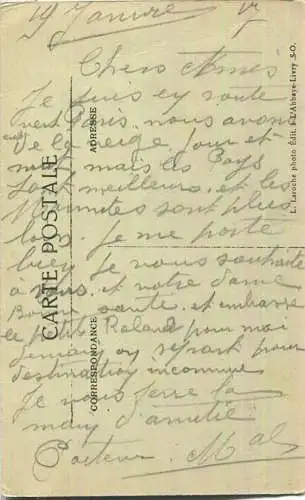 19 Janvier 17
Chers Amis
Je suis en route
vert Paris. nous avons
eu de la neige jour et
nuit mais les Pays
sont meilleurs. et les
Minutes sont plus
Je me porte
bien Je vous souhaite
a vous. et notre dame
Bonne sante. et embrasse
le petit Roland pour moi
demain on repart pour
destination inconnue
Je vous serre la
main d'amitié
CARTE POSTALE
ADRESSE
CORRESPONDANCE
L. Larocbe photo Édit. à L'Abbaye-Livry S.-O.